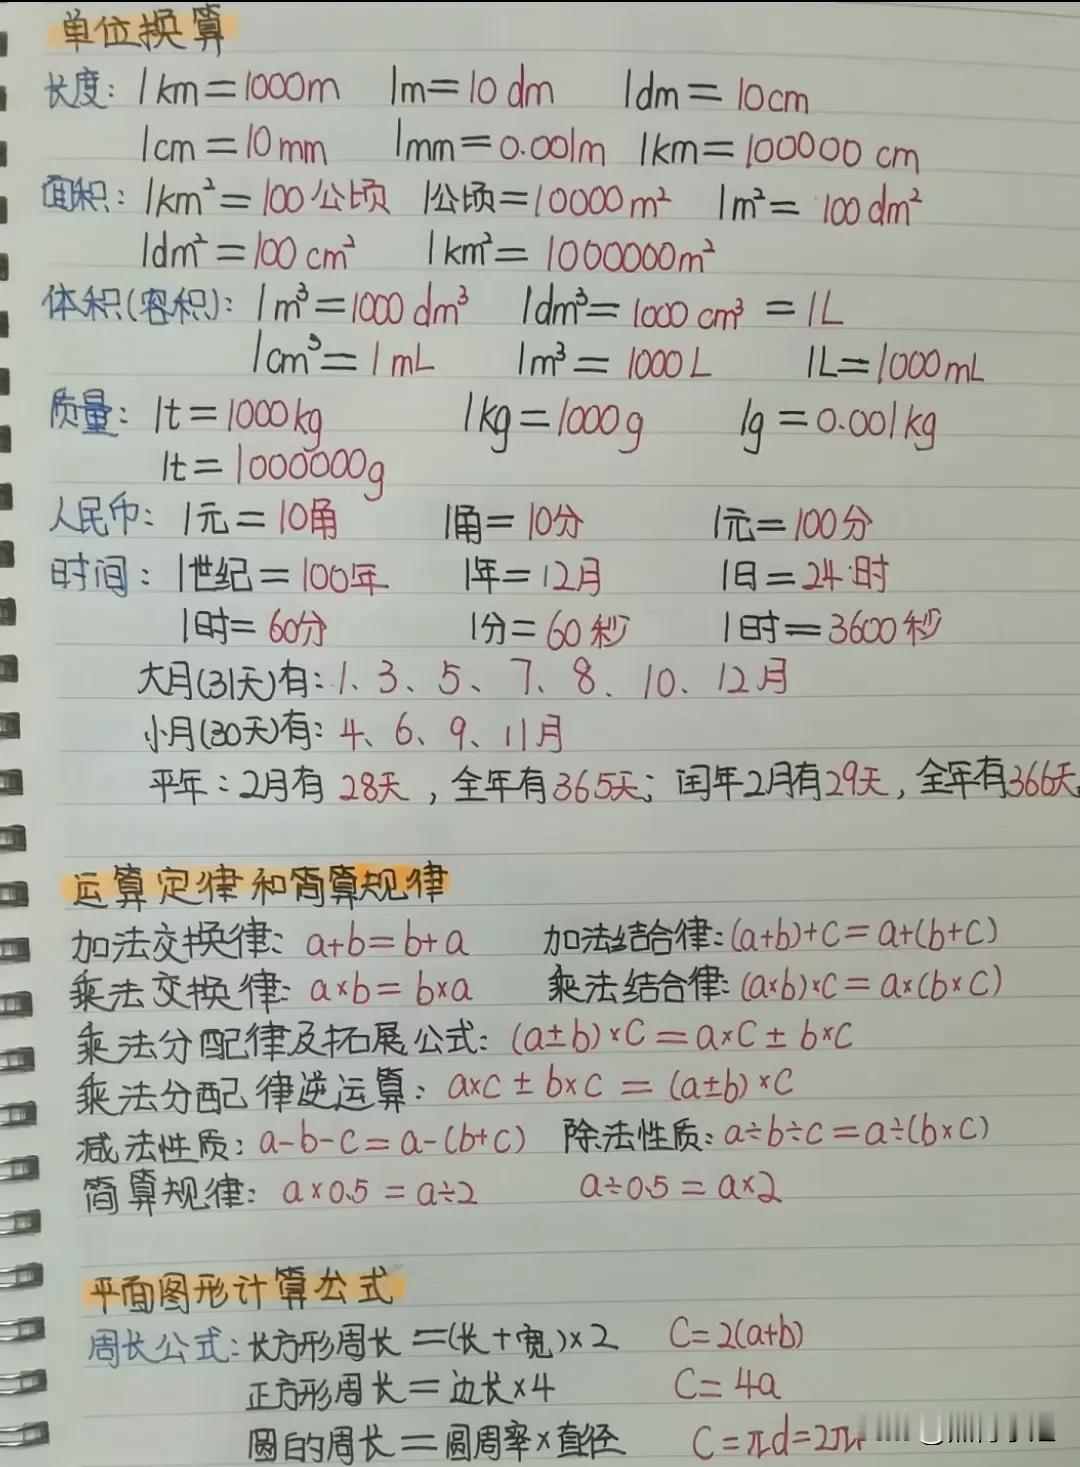 单位换算
长度: 1km=1000m 1m=10dm 1dm=10cm
1cm=10mm 1mm=0.001m 1km=100000cm
面积: 1km²=100公顷 1公顷=10000m² 1m²=100dm²
1dm²=100cm² 1km²=1000000m²
体积(容积): 1m³=1000dm³ 1dm³=1000cm³=1L
1cm³=1mL 1m³=1000L 1L=1000mL
质量: 1t=1000kg 1kg=1000g 1g=0.001kg
1t=1000000g
人民币: 1元=10角 1角=10分 1元=100分
时间: 1世纪=100年 1年=12月 1日=24时
1时=60分 1分=60秒 1时=3600秒
大月(31天)有: 1、3、5、7、8、10、12月
小月(30天)有: 4、6、9、11月
平年:2月有28天,全年有365天;闰年2月有29天,全年有366天.
运算定律和简算规律
加法交换律: a+b=b+a 加法结合律:(a+b)+c=a+(b+c)
乘法交换律: a×b=b×a 乘法结合律:(a×b)×c=a×(b×c)
乘法分配律及拓展公式: (a±b)×c=a×c±b×c
乘法分配律逆运算: a×c±b×c=(a±b)×c
减法性质: a-b-c=a-(b+c) 除法性质: a÷b÷c=a÷(b×c)
简算规律: a×0.5=a÷2 a÷0.5=a×2
平面图形计算公式
周长公式: 长方形周长=(长+宽)×2 C=2(a+b)
正方形周长=边长×4 C=4a
圆的周长=圆周率×直径 C=πd=2πr